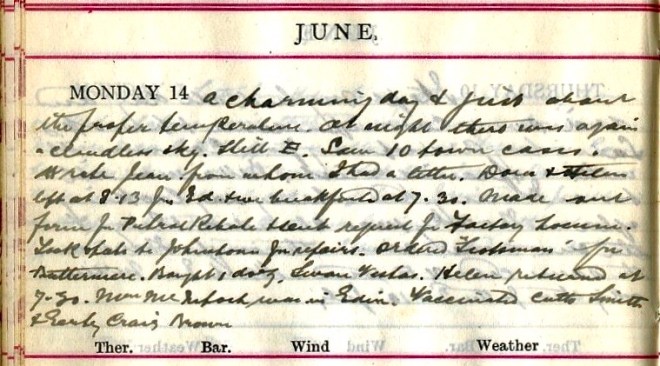 JUNE.
MONDAY 14 A charming day & just about
the proper temperature. At night there was again
a cloudless sky. Still E. Saw 10 town cases.
Wrote Jean from whom I had a letter. Dora & Helen
left at 8.13 for Ed. & we breakfasted at 7.30. Made out
form for Petrol Rebate & sent request for Factory
Took to Johnstone for repairs. Ordered Scotsman for
Buttermere. Bought 1 doz. Swan Vestas. Helen returned at
7.30. was in Edin. Vaccinated Smith
& Early Craig Brown
Ther. Bar. Wind Weather